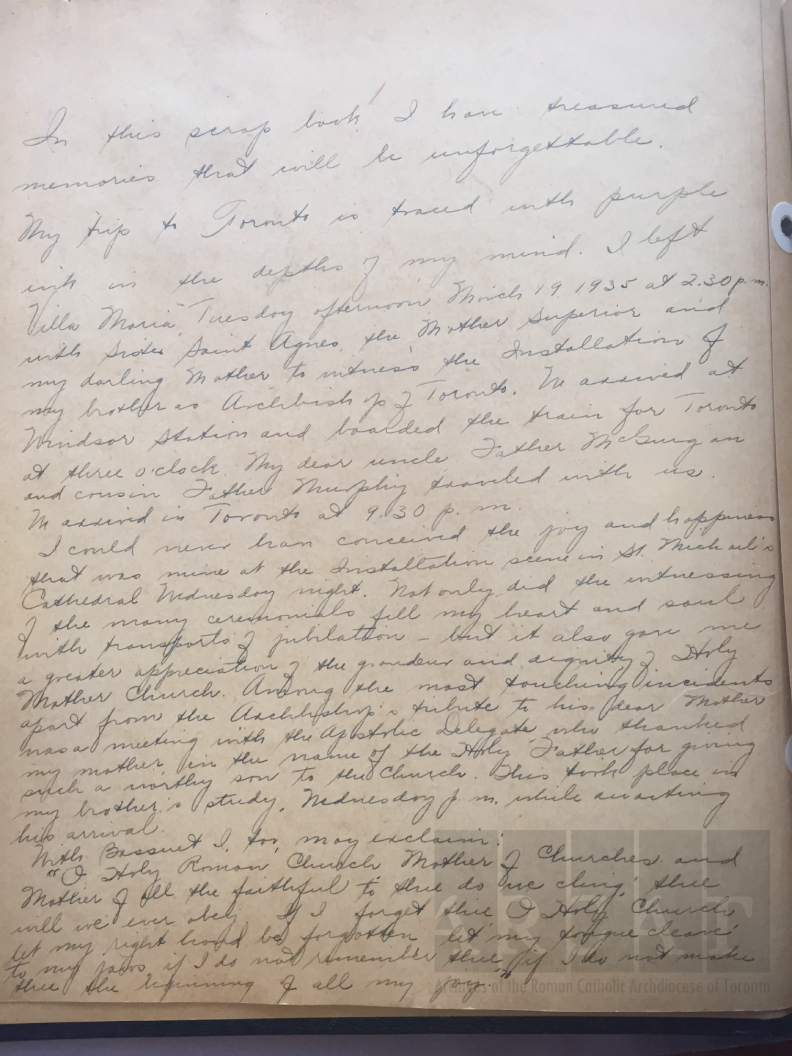 In this scrap book I have treasured
memories that will be unforgettable.
My trip to Toronto is traced with purple
ink in the depths of my mind. I left
Villa Maria, Tuesday afternoon March 19 1935 at 2.30 p.m.
with Sister Saint Agnes, the Mother Superior and
my darling Mother to witness the Installation of
my brother as Archbishop of Toronto. We arrived at
Windsor Station and boarded the train for Toronto
at three o'clock. My dear uncle Father McGuigan
and cousin Father Murphy traveled with us.
We arrived in Toronto at 9.30 p.m.
I could never have conceived the joy and happiness
that was mine at the Installation scene in St. Michael's
Cathedral Wednesday night. Not only did the witnessing
of the many ceremonials fill my heart and soul
with transports of jubilation – but it also gave me
a greater appreciation of the grandeur and dignity of Holy
Mother Church. Among the most touching incidents
apart from the Archbishop's tribute to his dear Mother
was a meeting with the Apostolic Delegate who thanked
my mother in the name of the Holy Father for giving
such a worthy son to the Church. This took place in
my brother's study, Wednesday p.m. while awaiting
his arrival.
With Bossuet I, too, may exclaim:
"O Holy Roman Church Mother of Churches and
Mother of all the faithful to thee do we cling, thee
will we ever obey. If I forget thee O Holy Church
let my right hand be forgotten let my tongue cleave
to my jaws if I do not remember thee, if I do not make
thee the beginning of all my joy."
Archives of the Roman Catholic Archdiocese of Toronto